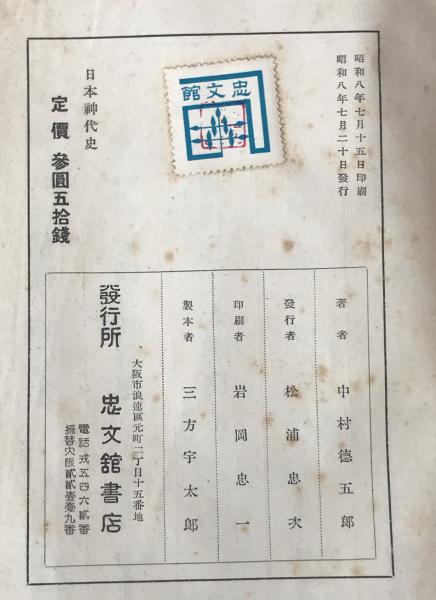 昭和八年七月十五日印刷
昭和八年七月二十日發行
忠文館
日本神代史
定價 參圓五拾錢
著者 中村德五郎
發行者 松浦忠次
印刷者 岩岡忠一
製本者 三方宇太郎
大阪市浪速區元町二丁目十五番地
發行所 忠文舘書店
電話戎五四六貳番
振替大阪貳貳壹壹九番